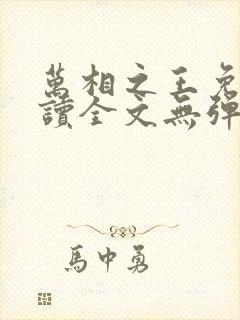 萬相之王免
讀全文無彈
馬中勇